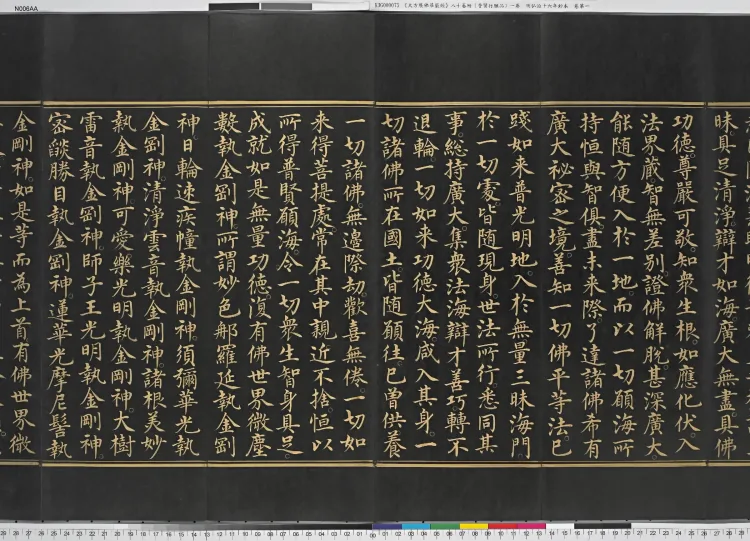 昧具足清淨辯才如海廣大無盡具佛
功德尊嚴可敬知衆生根如應化伏入
法界藏智無差別證佛解脫甚深廣大
能隨方便入於一地而以一切願海所
持恒與智俱盡未來際了達諸佛希有
廣大祕密之境善知一切佛平等法已
踐如來普光明地入於無量三昧海門
於一切處皆隨現身世法所行悉同其
事總持廣大集衆法海辯才善巧轉不
退輪一切如來功德大海咸入其身一
切諸佛所在國土皆隨願往已曽供養
一切諸佛無邊際劫歡喜無倦一切如
來得菩提處常在其中親近不捨恒以
所得普賢願海令一切衆生智身具足
成就如是無量功德復有佛世界微塵
數執金剛神所謂妙色那羅延執金剛
神日輪速疾幢執金剛神須彌華光執
金剛神清淨雲音執金剛神諸根美妙
執金剛神可愛樂光明執金剛神大樹
雷音執金剛神師子王光明執金剛神
密燄勝目執金剛神蓮華光摩尼髻執
金剛神如是等而為上首有佛世界微
N006AA